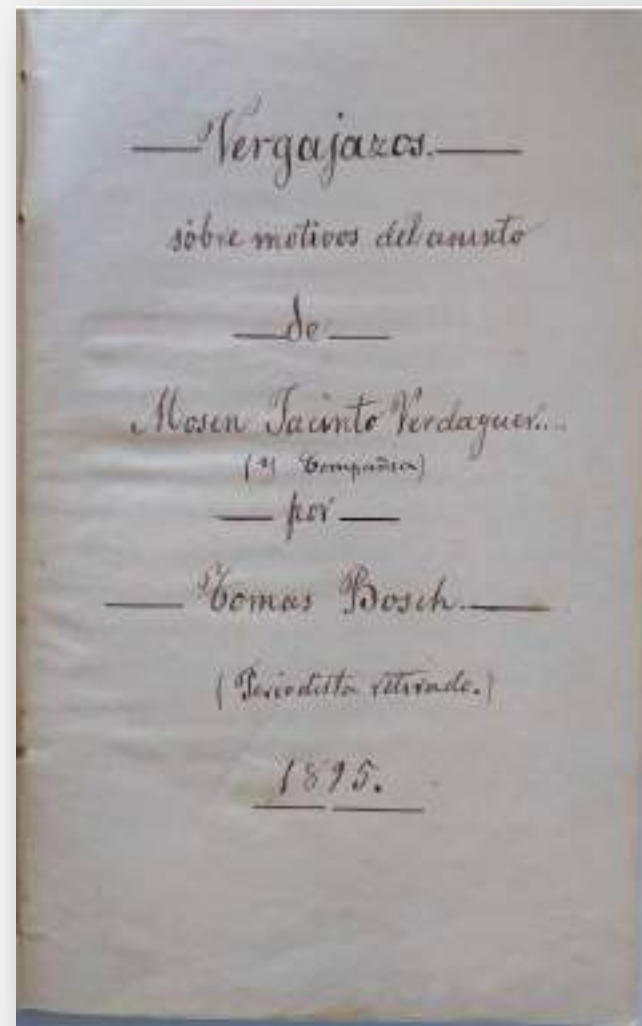 Vergajazos.
sobre motivos del asunto
de
Mosen Jacinto Verdaguer...
por
Tomas Bosch
(Periodista retirado.)
1895.